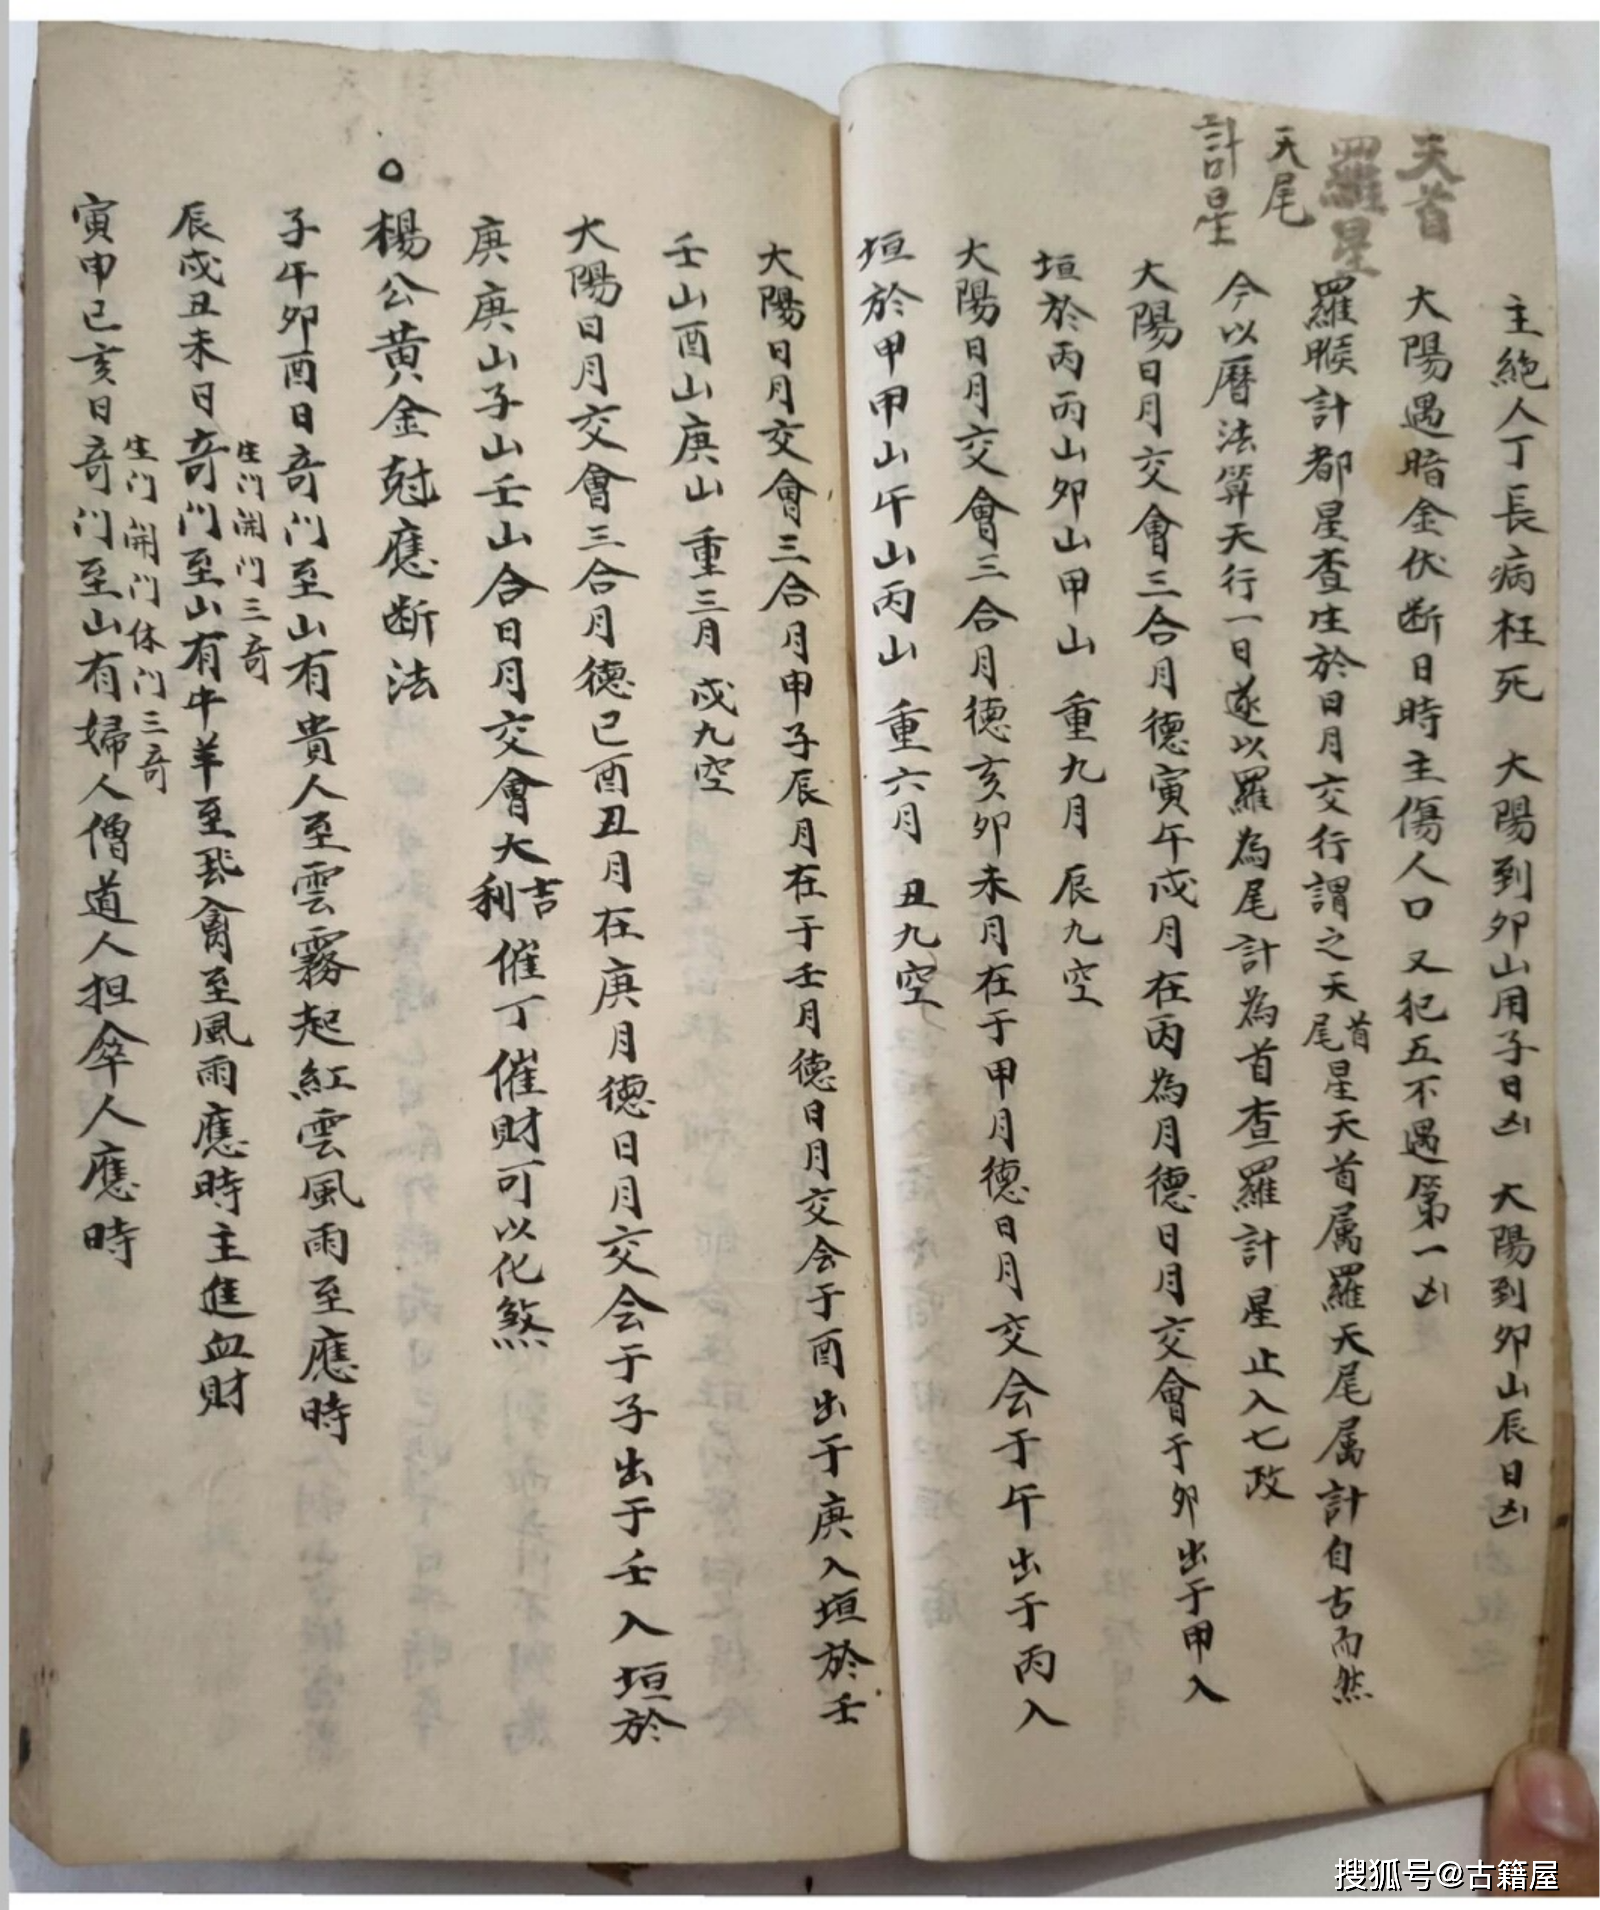 天首
羅星
天尾
計星
主絕人丁長病枉死　大陽到卯山用子日凶　大陽到卯山辰日凶
大陽遇暗金伏断日時主傷人口又犯五不遇第一凶
羅睺計都星查生於日月交行謂之天首尾星天首属羅天尾属計自古而然
今以曆法算天行一日遂以羅為尾計為首查羅計星止入七政
大陽日月交會三合月德寅午戌月在丙為月德日月交會于卯出于甲入
垣於丙丙山卯山甲山　重九月　辰九空
大陽日月交會三合月德亥卯未月在于甲月德日月交会于午出于丙入
垣於甲甲山午山丙山　重六月　丑九空
大陽日月交會三合月申子辰月在于壬月德日月交会于酉出于庚入垣於壬
壬山酉山庚山　重三月　戌九空
大陽日月交會三合月德巳酉丑月在庚月德日月交会于子出于壬入垣於
庚庚山子山壬山合日月交會大吉利催丁催財可以化煞
○楊公黄金尅應断法
子午卯酉日奇门至山有貴人至雲霧起紅雲風雨至應時
生门開门三奇
辰戌丑未日奇门至山有牛羊至飛禽至風雨應時主進血財
生门開门休门三奇
寅申巳亥日奇门至山有婦人僧道人担傘人應時
搜狐号@古籍屋